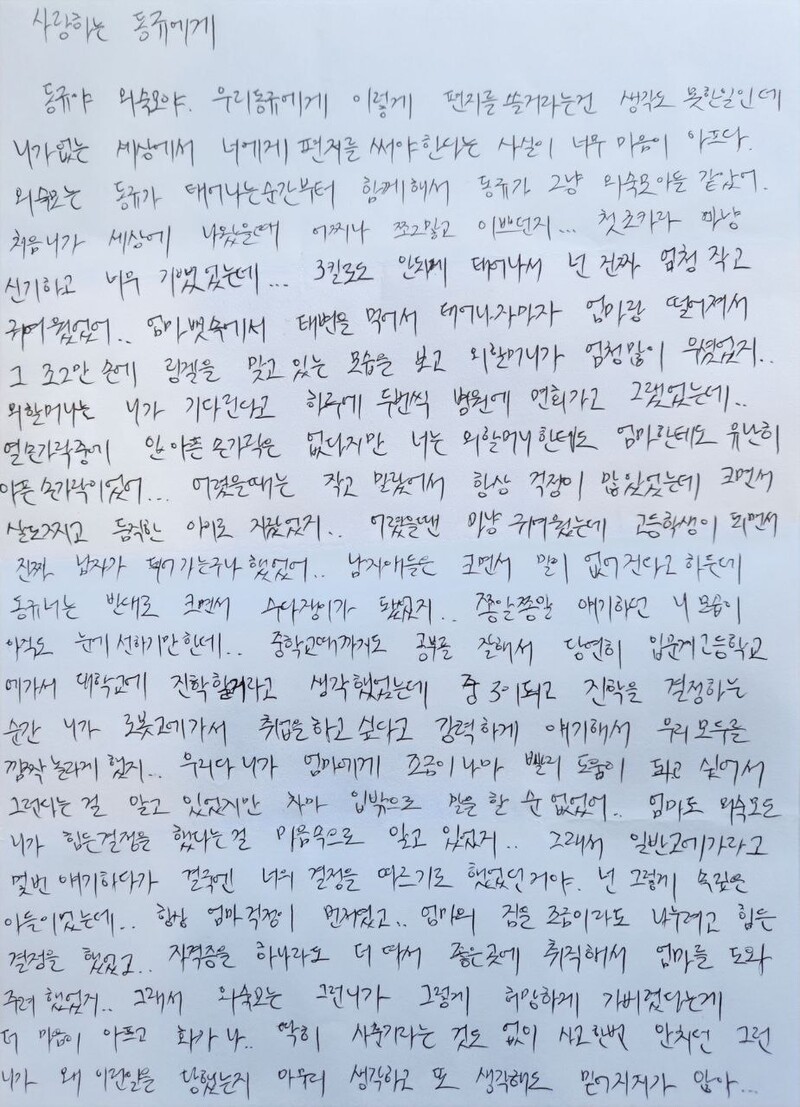 사랑하는 동규에게
동규야 외숙모야. 우리동규에게 이렇게 편지를 쓸거라는건 생각도 못한일인데
니가없는 세상에서 너에게 편지를 써야한다는 사실이 너무 마음이 아프다.
외숙모는 동규가 태어나는순간부터 함께해서 동규가 그냥 외숙모아들 같았어.
처음니가 세상에 나왔을때 어찌나 쪼그맣고 이쁘던지... 첫조카라 마냥
신기하고 너무 기뻤었는데... 3킬로도 안되게 태어나서 넌 진짜 엄청 작고
귀여웠었어.. 엄마뱃속에서 태변을 먹어서 태어나자마자 엄마랑 떨어져서
그 조그만 손에 링겔을 맞고 있는 모습을 보고 외할머니가 엄청많이 우셨었지..
외할머니는 니가 기다린다고 하루에 두번씩 병원에 면회가고 그랬었는데..
열손가락중에 안아픈 손가락은 없다지만 너는 외할머니한테도 엄마한테도 유난히
아픈 손가락이었어... 어렸을때는 작고 말랐어서 항상 걱정이 많았었는데 크면서
살도찌고 듬직한 아이로 자랐었지.. 어렸을땐 마냥 귀여웠는데 고등학생이 되면서
진짜 남자가 되어가는구나 했었어.. 남자애들은 크면서 말이 없어진다고 하든데
동규너는 반대로 크면서 수다쟁이가 됐었지.. 쫑알쫑알 얘기하던 니모습이
아직도 눈에 선하기만한데.. 중학교때까지도 공부를 잘해서 당연히 인문계고등학교
에가서 대학교에 진학할거라고 생각했었는데 중3이되고 진학을 결정하는
순간 니가 로봇고에가서 취업을하고 싶다고 강력하게 얘기해서 우리모두를
깜짝놀라게 했지... 우리다 니가 엄마에게 조금이나마 빨리 도움이 되고 싶어서
그런다는 걸 알고 있었지만 차마 입밖으로 말을 할 순 없었어.. 엄마도 외숙모도
니가 힘든결정을 했다는걸 마음속으로 알고 있었지.. 그래서 일반고에가라고
몇번 얘기하다가 결국엔 너의 결정을 따르기로 했었던거야. 넌 그렇게 속깊은
아들이었는데.. 항상 엄마걱정이 먼저였고.. 엄마의 짐을 조금이라도 나누려고 힘든
결정을 했었고.. 자격증을 하나라도 더 따서 좋은곳에 취직해서 엄마를 도와
주려 했었지.. 그래서 외숙모는 그런니가 그렇게 허망하게 가버렸다는게
더 마음이 아프고 화가 나.. 딱히 사춘기라는 것도 없이 사고한번 안치던 그런
니가 왜 이런일을 당했는지 아무리 생각하고 또 생각해도 믿어지지가 않아...